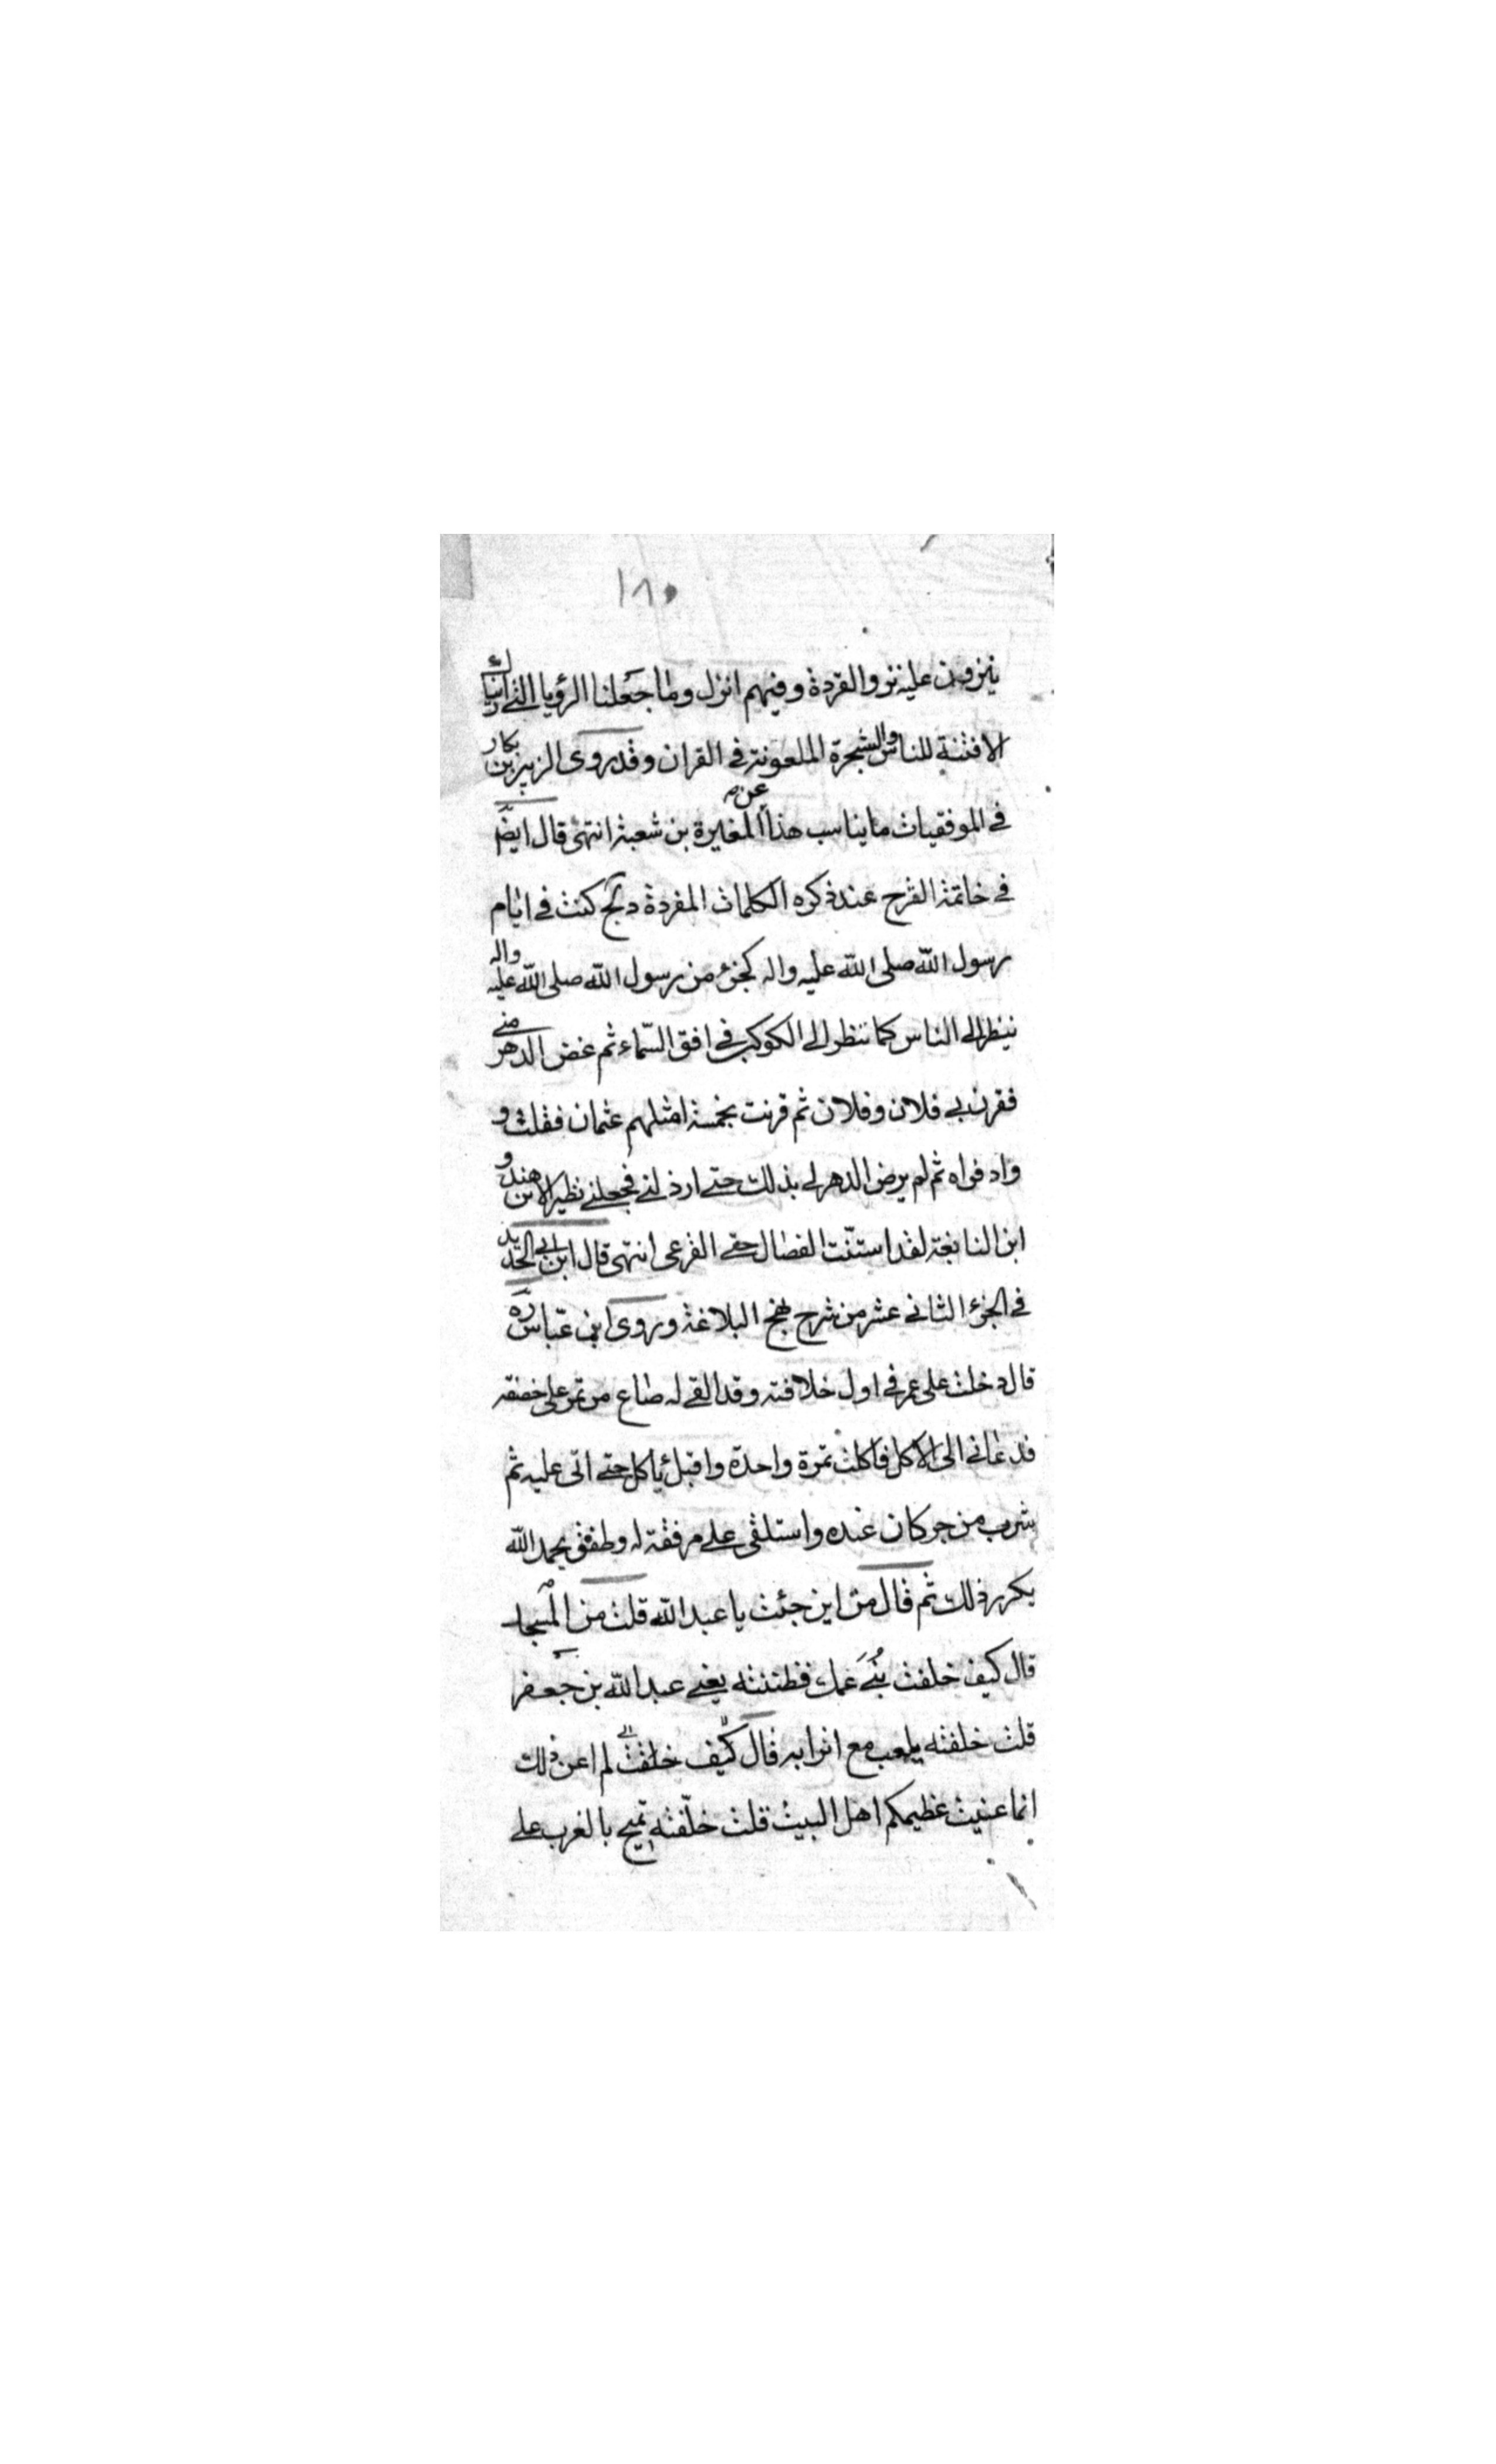 ١٨٠
ينزون عليه نزو القردة وفيهم انزل وما جعلنا الرؤيا التي اريناك
الا فتنة للناس والشجرة الملعونة في القران وقد روى الزبير بن بكار
في الموفقيات ما يناسب هذا عن المغيرة بن شعبة انتهى قال ايضا
في خاتمة الشرح عند ذكره الكلمات المفردة كنت في ايام
رسول الله صلى الله عليه واله كجزء من رسول الله صلى الله عليه واله
ينظر الى الناس كما تنظر الى الكوكب في افق السماء ثم غض الدهر مني
فقرن بي فلان وفلان ثم قرنت بخمسة امثلهم عثمان فقلت و
واذفراه ثم لم يرض الدهر لي بذلك حتى ارذلني فجعلني نظيرا لابن هند و
ابن النابغة لقد استنت الفصال حتى القرعى انتهى قال ابن ابي الحديد
في الجزء الثاني عشر من شرح نهج البلاغة وروى ابن عباس ره
قال دخلت على عمر في اول خلافته وقد القي له صاع من تمر على خصفة
فدعاني الى الاكل فاكلت تمرة واحدة واقبل ياكل حتى اتى عليه ثم
شرب من جر كان عنده واستلقى على مرفقة له وطفق يحمد الله
يكرر ذلك ثم قال من اين جئت يا عبد الله قلت من المسجد
قال كيف خلفت بني عمك فظننته يعني عبد الله بن جعفر
قلت خلفته يلعب مع اترابه قال كيف خلفت لم اعن ذلك
انما عنيت عظيمكم اهل البيت قلت خلفته يمتح بالغرب على